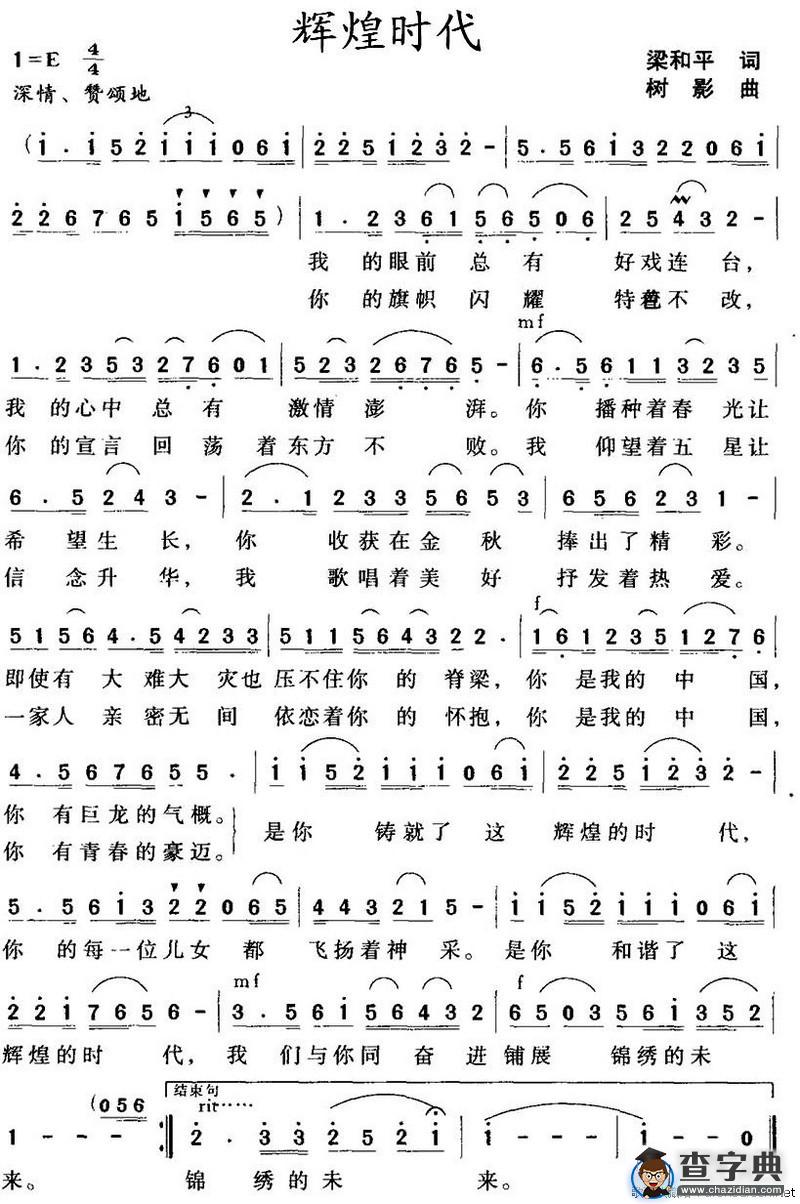 辉煌时代
1=E 4/4
梁和平 词
深情、赞颂地
树 影 曲
3
(i·i52iii06i|225i232-|5·56i32206i|
2267 65i565)|1·23615650 6|25432-|
我 的眼前 总 有 好戏连 台,
你 的旗帜 闪 耀 特色不 改,
mf
1·2353276 01|5232676 5-|6·56113235|
我 的心中 总 有 激情 澎 湃。你 播种着春 光让
你 的宣言 回 荡 着东方 不 败。我 仰望着五 星让
6·5243-|2·1233 5653|656231-|
希 望生 长,你 收获在金 秋 捧出了精 彩。
信 念升 华,我 歌唱着美 好 抒发着热 爱。
f
51564·54233|5115643 22·|1612351276|
即使有 大 难大 灾也 压不住你 的 脊梁,你 是我的 中 国,
一家人 亲 密无 间 依恋着你 的 怀抱,你 是我的 中 国,
4·5676555·|ii52iii06i|225i232-|
你 有巨龙的气概。
是你 铸就了 这 辉煌的时 代,
你 有青春的豪迈。
5·56i322065|4433215-|ii52iii06i|
你 的每一位儿女 都 飞扬着神 采。是你 和谐了 这
mf f
22i7656-|3·56i56432|650356i352|
辉煌的时 代,我 们与你同 奋 进铺展 锦绣的未
结束句
(056 rit……
1---:|2·33252i|i---|i--0|
来。 锦 绣的未 来。
查字典
www.chazidian.com